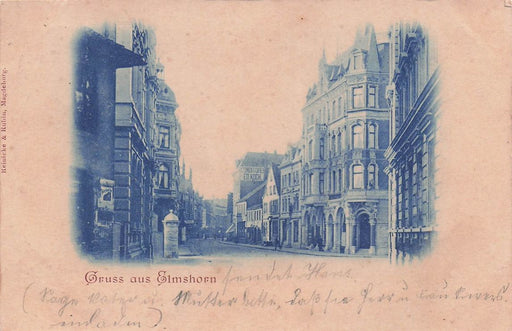 Reinicke & Rubin, Magdeburg.
CONDITOREI
Gruss aus Elmshorn
sendet Hans
(Sage Vater u. Mutter bitte, daß sie Herr u.
einladen)